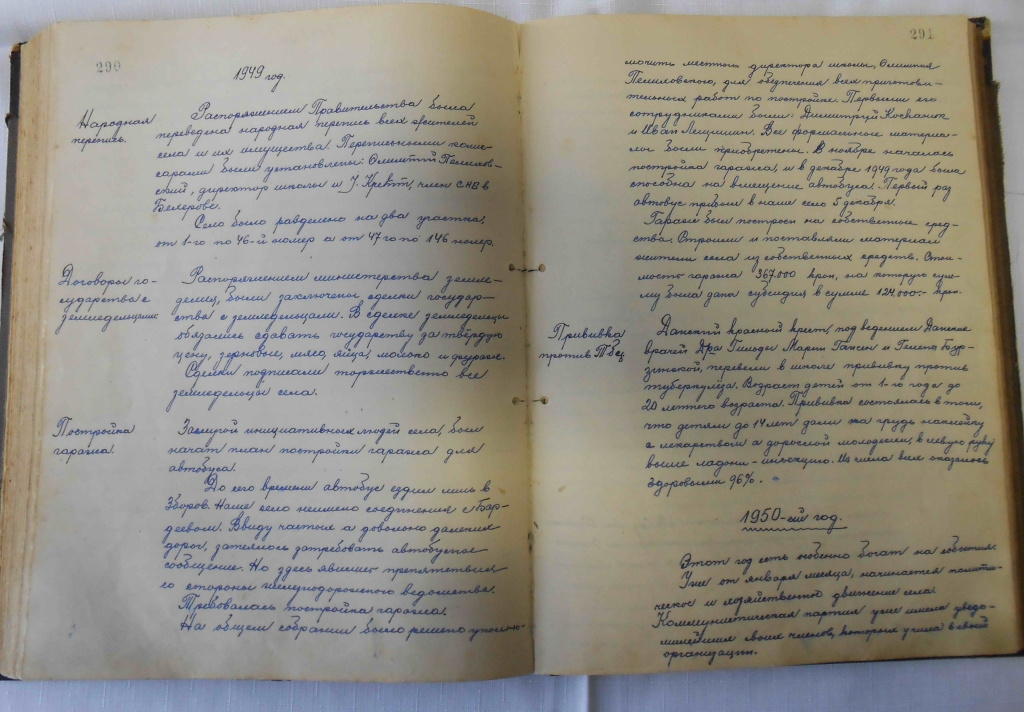 290
1949 год.
Народная
перепись.
Распоряжением Правительства была
переведена народная перепись всех жителей
села и их имущества. Переписными коми-
сарами были установлены: Олимпий Петилов-
ский, директор школы и J. Кревт, член СНВ в
Бехерове.
Село было разделено на два участка,
от 1-го по 46-й номер а от 47го по 146 номер.
Договоры го-
сударства с
земледельцами
Распоряжением министерства земле-
делия, были заключены сделки государ-
ства с земледельцами. В сделке земледельцы
обязались сдавать государству за твёрдую
цену, зерновые, мясо, яйца, молоко и фураж.
Сделки подписали торжественно все
земледельцы села.
Постройка
гаража.
Заслугой инициативных людей села, был
начат план постройки гаража для
автобуса.
До его времени автобус ездил лишь в
Зборов. Наше село неимело соединения с Бар-
деевом. Ввиду частых а довольно далеких
дорог, затеялось затребовать автобусное
сообщение. Но здесь явились препятствия
со стороны железнодорожного ведомства.
Требовалась постройка гаража.
На общем собрании было решено уполно-
291
мочить местного директора школы, Олимпия
Петиловского, для обезпечения всех приготови-
тельных работ по постройке. Первыми его
сотрудниками были: Димитрий Коцанюк
и Иван Лецишин. Все формальные материа-
лы были приобретены. В ноябре началась
постройка гаража, и в декабре 1949 года была
способна на вмещение автобуса. Первый раз
автобус прибыл в наше село 5 декабря.
Гараж был построен на собственные сред-
ства. Строили и поставляли материал
жители села из собственных средств. Стои-
мость гаража 367.000 крон, на которую сум-
му была дана субсидия в сумме 124.000.- крон.
Прививка
против Тбц.
Данский красный крест, под ведением Данских
врачей Дра Гильды Марии Гансен и Гелена Бозр-
зинской, перевели в школе прививку против
туберкулёза. Возраст детей от 1-го года до
20 летнего возраста. Прививка состоялась в том,
что детям до 14 лет дали на грудь наклейку
с лекарством а дорослой молодежи, в левую руку
выше ладони - инъекцию. Из числа всех оказалось
здоровыми 96%.
1950-ый год.
Этот год есть особенно богат на события.
Уже от января месяца, начинается полити-
ческое и хозяйственное движение села.
Коммунистическая партия уже имела уведо-
милейших своих членов, которых учила в своей
организации.